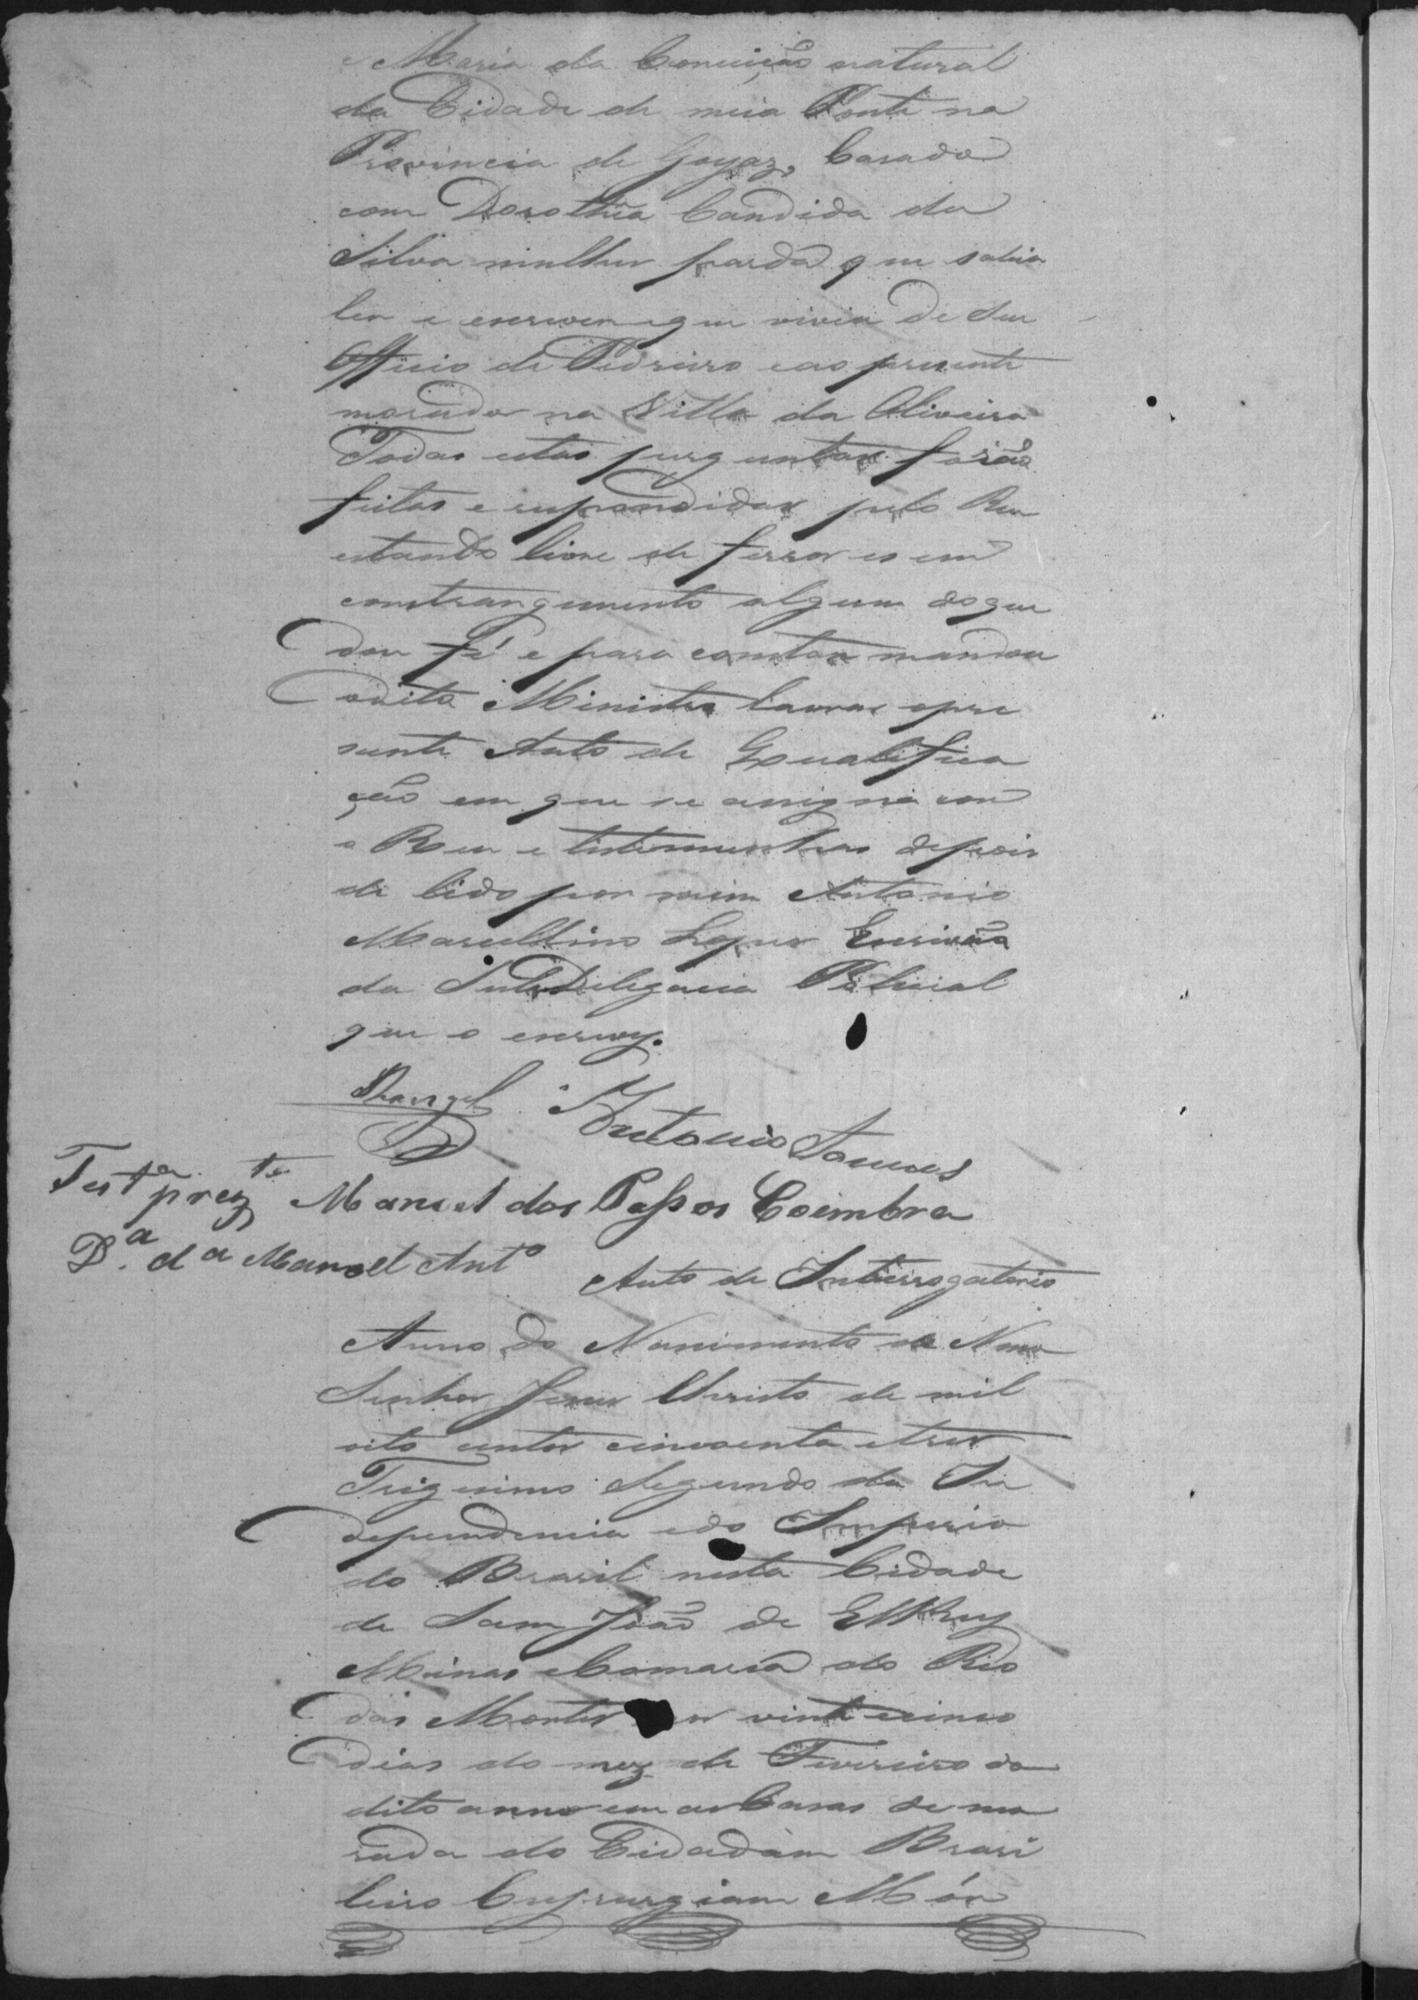 e Maria da Conceição natural
da Cidade de meia Ponte na
Provincia de Goyaz, Casado
com Dorothea Candida da
Silva mulher parda que sabia
ler e escrever e que vivia de seu
Officio de Pedreiro e ao presente
morador na Villa da Oliveira
Todas estas perguntas forão
feitas e respondidas pelo Reu
estando livre de ferros e sem
constrangimento algum do que
dou fé e para constar mandou
o dito Ministro lavrar o pre
sente Auto de Qualifica
ção em que se assigna com
o Reu e testemunhas depois
de lido por mim Antonio
Marcellino Lopes Escrivão
da SubDelegacia Policial
que o escrevy.
Rangel Antonio
Test.ª prez.te Manoel dos Passos Coimbra
D.ª d.ª Manoel Ant.º
Auto de Interrogatorio
Anno do Nascimento de Nosso
Senhor Jesus Christo de mil
oito centos cincoenta e tres
Trigesimo Segundo da In
dependencia e do Imperio
do Brasil nesta Cidade
de Sam João de ElRey
Minas e Comarca do Rio
das Mortes aos vinte e cinco
dias do mez de Fevereiro do
dito anno em as Casas de mo
rada do Cidadam Brasi
leiro Cyrurgiam Mór